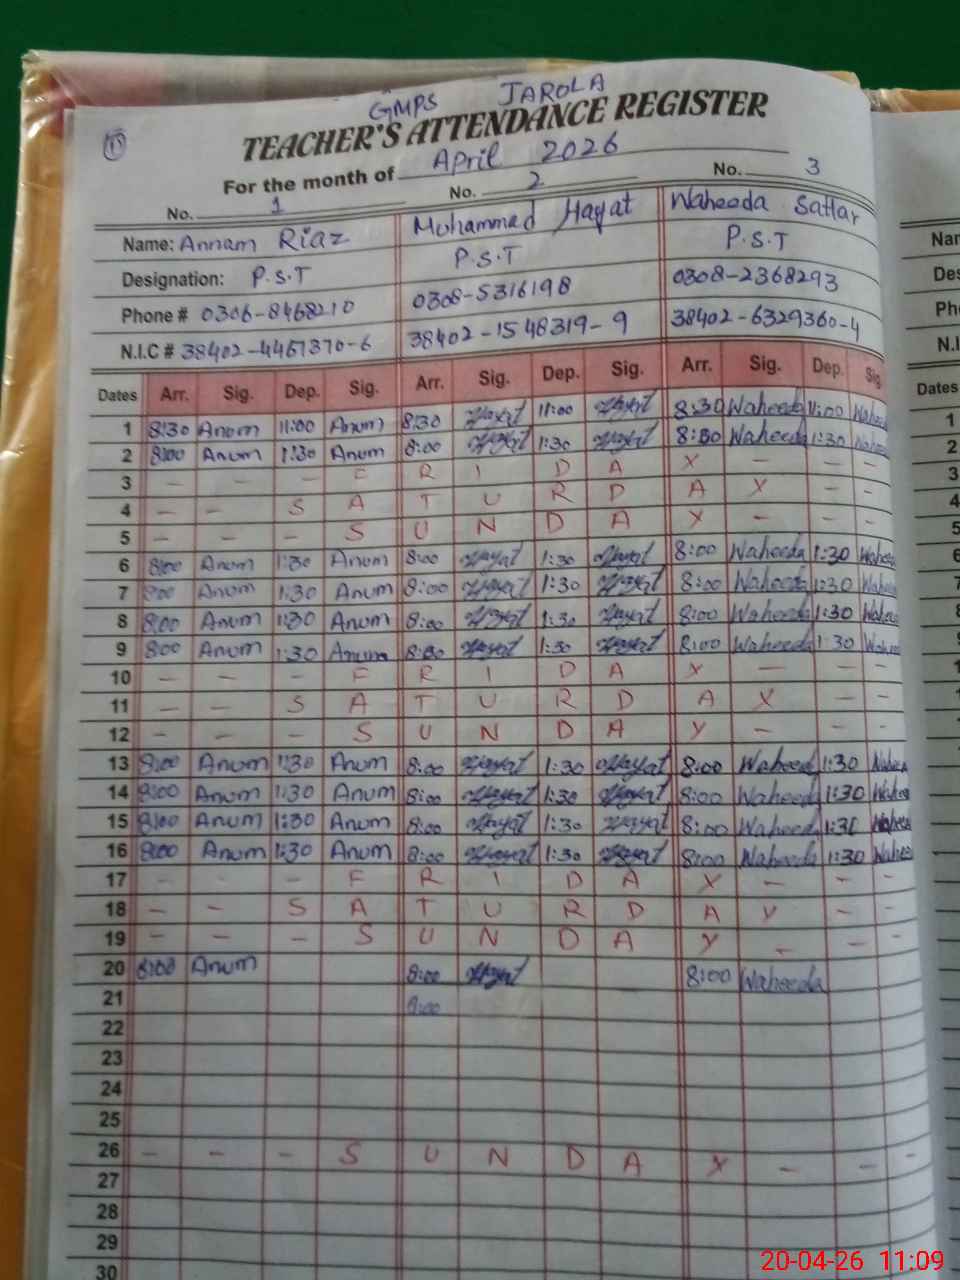 GMPS JAROLA
1
TEACHER'S ATTENDANCE REGISTER
For the month of April 2026
No. 1 No. 2 No. 3
Name: Annam Riaz Mohammed Hayat Waheeda Sattar
Designation: P.S.T P.S.T P.S.T
Phone # 0306-8468210 0308-5316198 0308-2368293
N.I.C # 38402-4461370-6 38402-1548319-9 38402-6329360-4
Dates Arr. Sig. Dep. Sig. Arr. Sig. Dep. Sig. Arr. Sig. Dep. Sig
1 8:30 Anum 11:00 Anum 8:30 Hayat 11:00 Hayat 8:30 Waheeda 11:00 Waheeda
2 8:00 Anum 1:30 Anum 8:00 Hayat 1:30 Hayat 8:00 Waheeda 1:30 Waheeda
3 - - - F R I D A Y - - -
4 - - S A T U R D A Y - -
5 - - - S U N D A Y - - -
6 8:00 Anum 1:30 Anum 8:00 Hayat 1:30 Hayat 8:00 Waheeda 1:30 Waheeda
7 8:00 Anum 1:30 Anum 8:00 Hayat 1:30 Hayat 8:00 Waheeda 1:30 Waheeda
8 8:00 Anum 1:30 Anum 8:00 Hayat 1:30 Hayat 8:00 Waheeda 1:30 Waheeda
9 8:00 Anum 1:30 Anum 8:00 Hayat 1:30 Hayat 8:00 Waheeda 1:30 Waheeda
10 - - - F R I D A Y - - -
11 - - S A T U R D A Y - -
12 - - - S U N D A Y - - -
13 8:00 Anum 1:30 Anum 8:00 Hayat 1:30 Hayat 8:00 Waheeda 1:30 Waheeda
14 8:00 Anum 1:30 Anum 8:00 Hayat 1:30 Hayat 8:00 Waheeda 1:30 Waheeda
15 8:00 Anum 1:30 Anum 8:00 Hayat 1:30 Hayat 8:00 Waheeda 1:30 Waheeda
16 8:00 Anum 1:30 Anum 8:00 Hayat 1:30 Hayat 8:00 Waheeda 1:30 Waheeda
17 - - - F R I D A Y - - -
18 - - S A T U R D A Y - -
19 - - - S U N D A Y - - -
20 8:00 Anum 8:00 Hayat 8:00 Waheeda
21 8:00
22
23
24
25
26 - - - S U N D A Y - - -
27
28
29
30
20-04-26 11:09